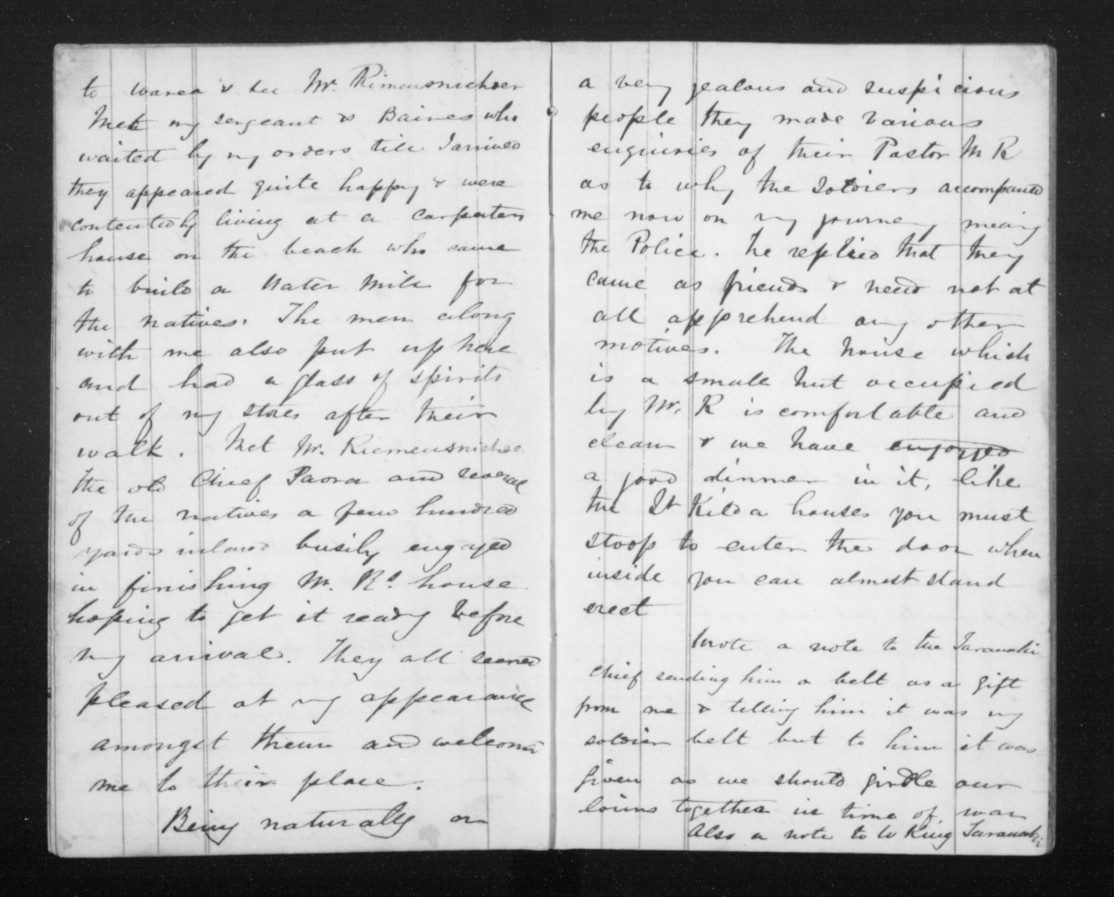 to Warea & see Mr. Rimensnichder
Met my sergeant & Baines who
waited by my orders till I arrived
they appeared quite happy & were
contentedly living at a carpenters
house on the beach who came
to build a Water Mill for
the natives. The men along
with me also put up here
and had a glass of spirits
out of my stores after their
walk. Met Mr. Riemensnichder
the old Chief Paora and several
of the natives a few hundred
yards inland busily engaged
in finishing Mr. Rs. house
hoping to get it ready before
my arrival. They all seemed
pleased at my appearance
amongst them and welcomed
me to their place.
Being naturally on
a very jealous and suspicious
people they made various
enquiries of their Pastor Mr R
as to why the soldiers accompanied
me now on my journey meaning
the Police. he replied that they
came as friends & need not at
all apprehend any other
motives. The house which
is a small hut occupied
by Mr. R is comfortable and
clean & we have enjoyed
a good dinner in it, like
the St Kilda houses you must
stoop to enter the door when
inside you can almost stand
erect
Wrote a note to the Taranaki
Chief sending him a belt as a gift
from me & telling him it was my
soldier belt but to him it was
given as we should girdle our
loins together in time of war
Also a note to W King Taranaki